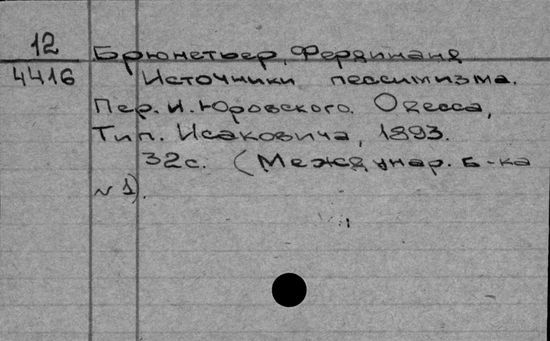 12 Брюнетьер, Фердинанд
4416 Источники пессимизма.
Пер. И. Юровского. Одесса,
Тип. Исаковича, 1893.
32с. (Междунар. б-ка
№ 1).